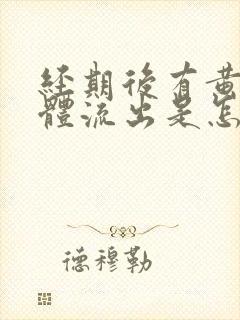 經期後有黃
體流出是怎
德穆勒